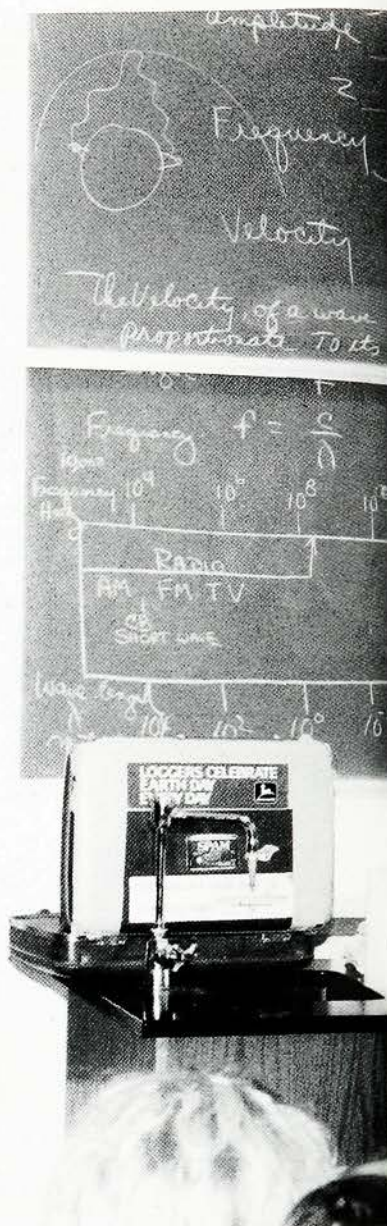 amplitude
2
Frequency
Velocity
The Velocity, of a wave
proportionate To its
Frequency f = c
λ
Frequency 10⁴ 10⁶ 10⁸
RADIO
AM FM TV
CB
SHORT WAVE
Wave length 10² 10⁰ 10
LOGGERS CELEBRATE
EARTH DAY
EVERY DAY
SPAM